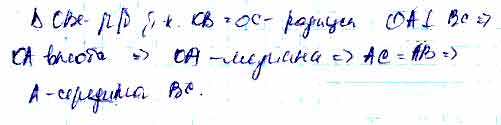 Δ OBC - р/б, т.к. OB = OC - радиусы OA ⊥ BC =>
OA высота => OA - медиана => AC = AB =>
A - середина BC.